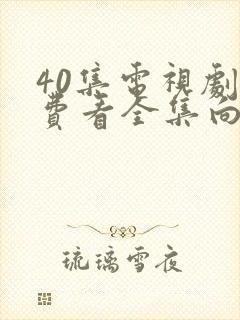 40集電視劇
費看全集向
琉璃雪夜